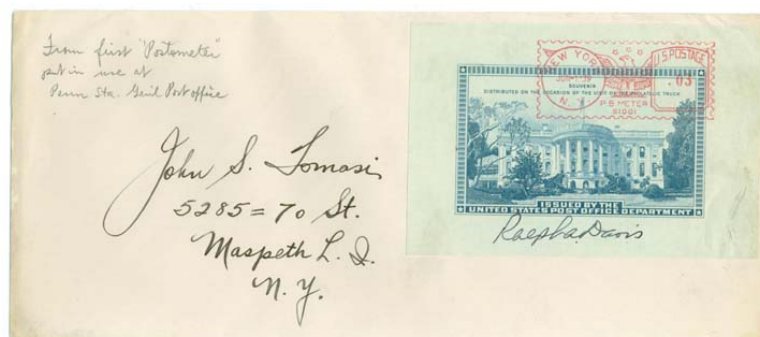 From first "Postometer"
put in use at
Penn Sta. Genl Post office
John S. Tomasi
5285 = 70 St.
Maspeth L. I.
N. Y.
NEW YORK
N. Y.
U.S. POSTAGE
.03
P.B. METER
81001
SOUVENIR
DISTRIBUTED ON THE OCCASION OF THE VISIT OF THE PHILATELIC TRUCK
ISSUED BY THE
UNITED STATES POST OFFICE DEPARTMENT
Ralph a. Davis